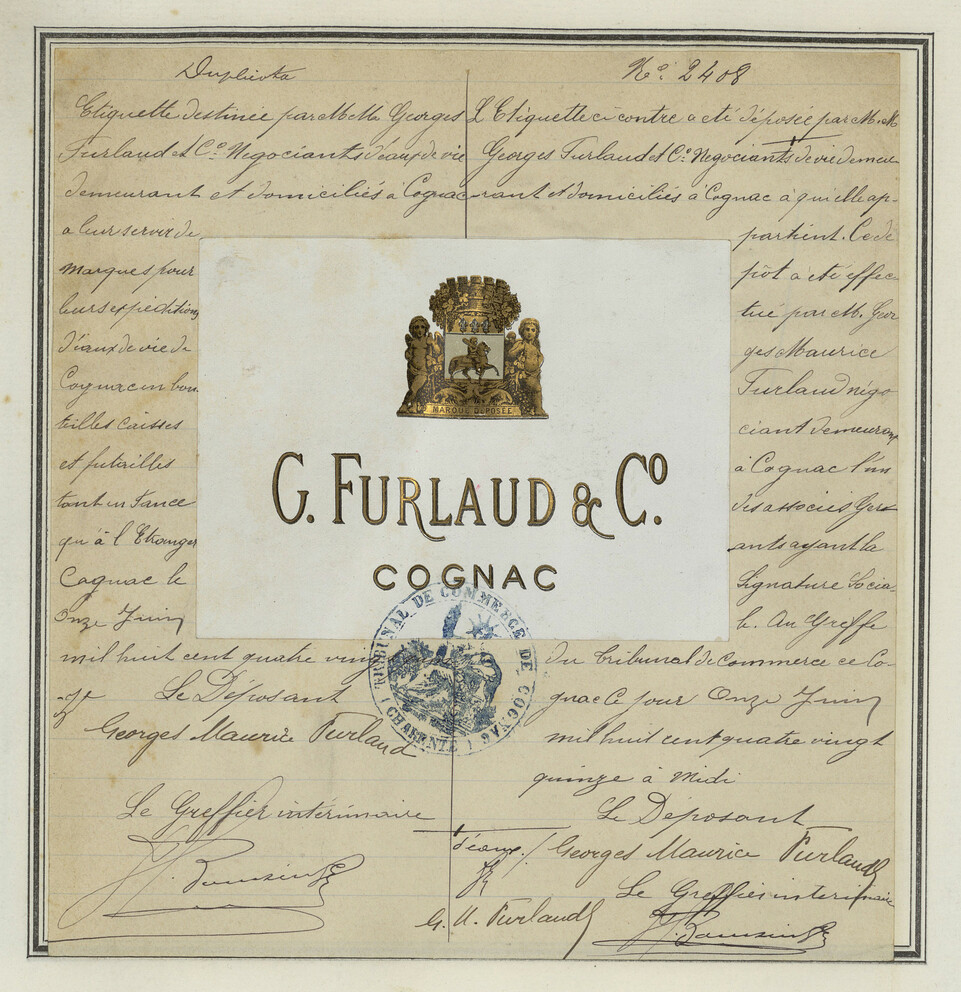 Duplicata
Etiquette destinée par M.M. Georges
Furlaud et Cº Negociants d'eaux de vie
demeurant et domiciliés à Cognac
a leur servir de
marques pour
leurs expéditions
d'eaux de vie de
Cognac en bou
teilles caisses
et futailles
tant en France
qu'à l'Etranger
Cognac le
Onze Juin
mil huit cent quatre vingt
Le Déposant
Georges Maurice Furlaud
Le Greffier intérimaire
Nº 2408
L'Etiquette ci contre a été déposée par M.M
Georges Furlaud et Cº Negociants de vie demeu
rant et domiciliés à Cognac à qui elle ap-
partient. Ce dé
pôt a été effec
tué par M. Geor
ges Maurice
Furlaud négo
ciant demeurant
à Cognac l'un
des associés Gér
ants ayant la
Signature Socia-
le. Au Greffe
du Tribunal de Commerce de Co-
gnac Ce jour Onze Juin
mil huit cent quatre vingt
quinze à Midi
Le Déposant
Georges Maurice Furlaud
Le Greffier intérimaire
d'eaux /
G. M. Furlaud
MARQUE DÉPOSÉE
G. FURLAUD & Cº
COGNAC
TRIBUNAL DE COMMERCE DE COGNAC
CHARENTE